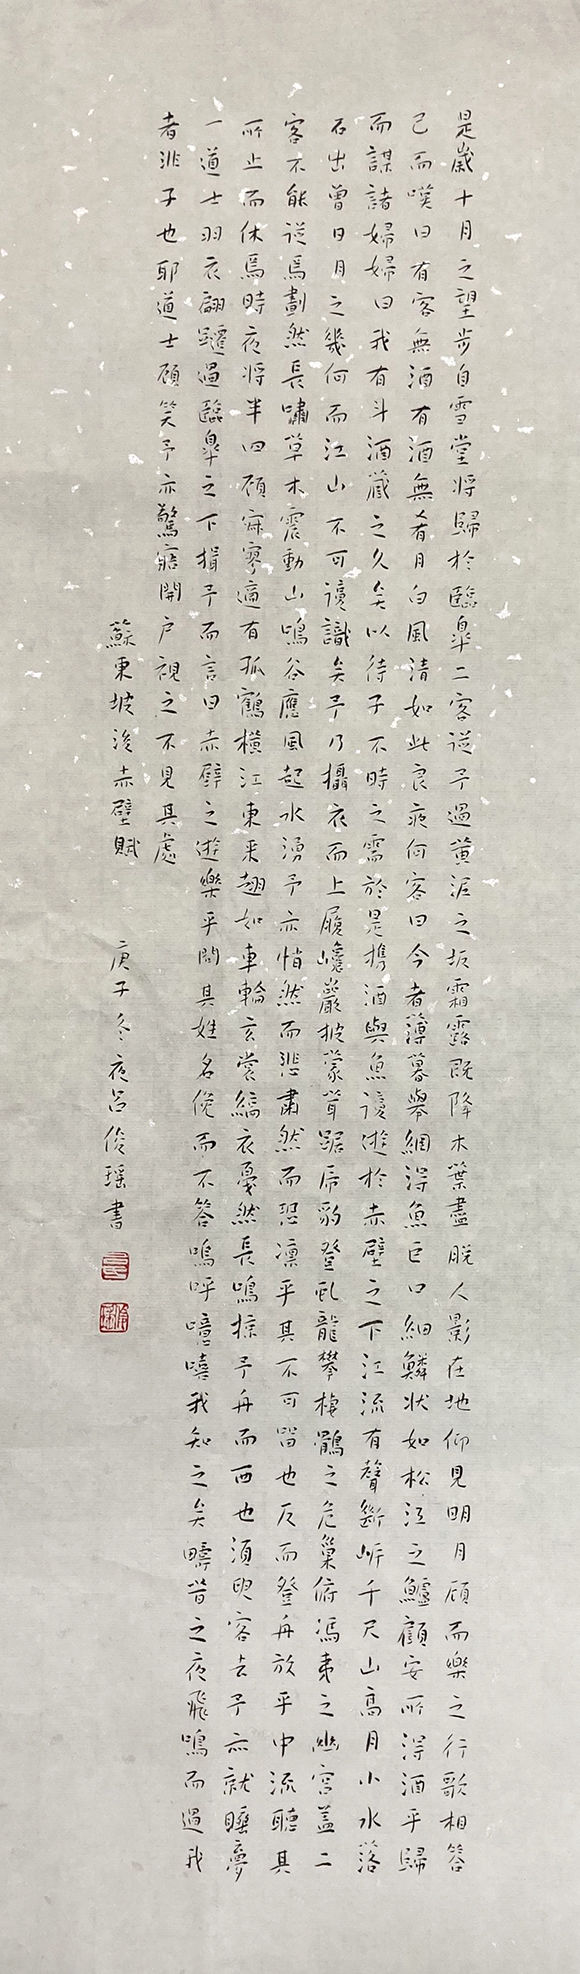 是歲十月之望步自雪堂將歸於臨皋二客從予過黃泥之坂霜露既降木葉盡脫人影在地仰見明月顧而樂之行歌相答
已而嘆曰有客無酒有酒無肴月白風清如此良夜何客曰今者薄暮舉網得魚巨口細鱗狀如松江之鱸顧安所得酒乎歸
而謀諸婦婦曰我有斗酒藏之久矣以待子不時之需於是攜酒與魚復遊於赤壁之下江流有聲斷岸千尺山高月小水落
石出曾日月之幾何而江山不可復識矣予乃攝衣而上履巉巖披蒙茸踞虎豹登虬龍攀棲鶻之危巢俯馮夷之幽宮蓋二
客不能從焉劃然長嘯草木震動山鳴谷應風起水湧予亦悄然而悲肅然而恐凜乎其不可留也反而登舟放乎中流聽其
所止而休焉時夜將半四顧寂寥適有孤鶴橫江東來翅如車輪玄裳縞衣戛然長鳴掠予舟而西也須臾客去予亦就睡夢
一道士羽衣翩躚過臨皋之下揖予而言曰赤壁之遊樂乎問其姓名俛而不答嗚呼噫嘻我知之矣疇昔之夜飛鳴而過我
者非子也耶道士顧笑予亦驚寤開戶視之不見其處
蘇東坡後赤壁賦 庚子冬夜呂俊瑶書